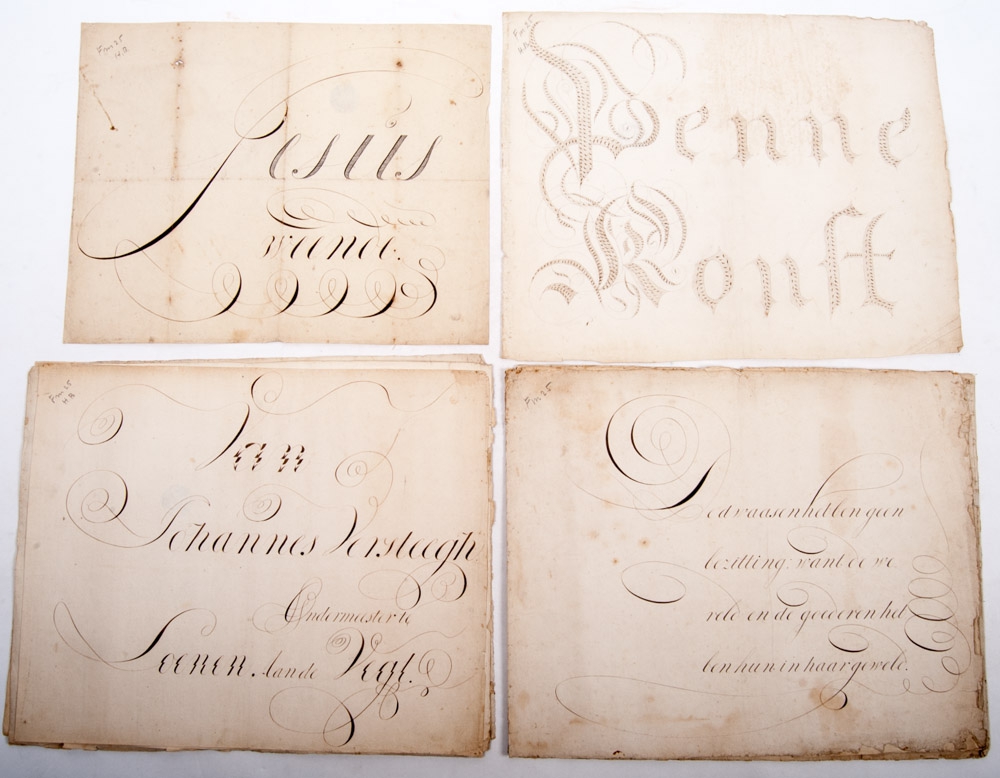 Fm 25
H.B.
Jesus
weende.
Fm 25
H.B.
Penne
Konst
Fm 25
H B
Van
Johannes Versteegh
Ondermeester te
Loenen. aan de Vegt.
Fm 25
De dwaasen hebben geen
bezitting: want de we
reld en de goederen heb
ben hun in haar geweld.